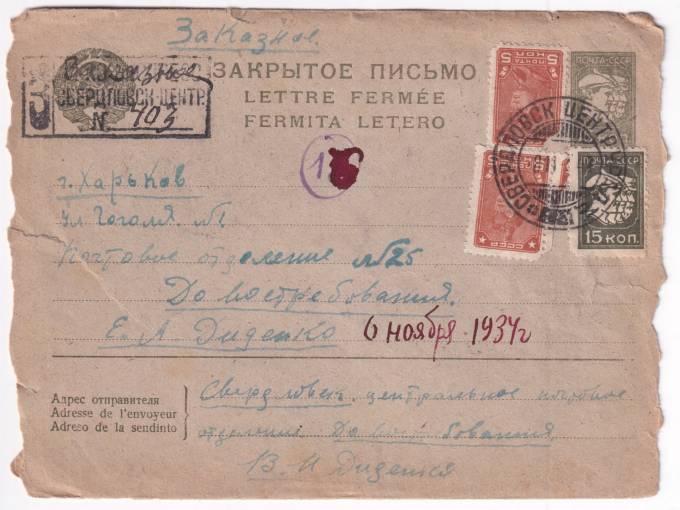 Заказное.
Заказное
СВЕРДЛОВСК-ЦЕНТР.
З
№ 403
ЗАКРЫТОЕ ПИСЬМО
LETTRE FERMÉE
FERMITA LETERO
5 ПОЧТА 5
ПОЧТА·СССР
СВЕРДЛОВСК ЦЕНТР
5
СССР
ПОЧТА·СССР
15 КОП.
1
г. Харьков
ул Гоголя. №1.
Почтовое отделение №25
До востребования.
Е. А Диденко
6 ноября 1934г
Адрес отправителя
Adresse de l'envoyeur
Adreso de la sendinto
Свердловск. центральное почтовое
отделение До востребования.
В. И Диденко